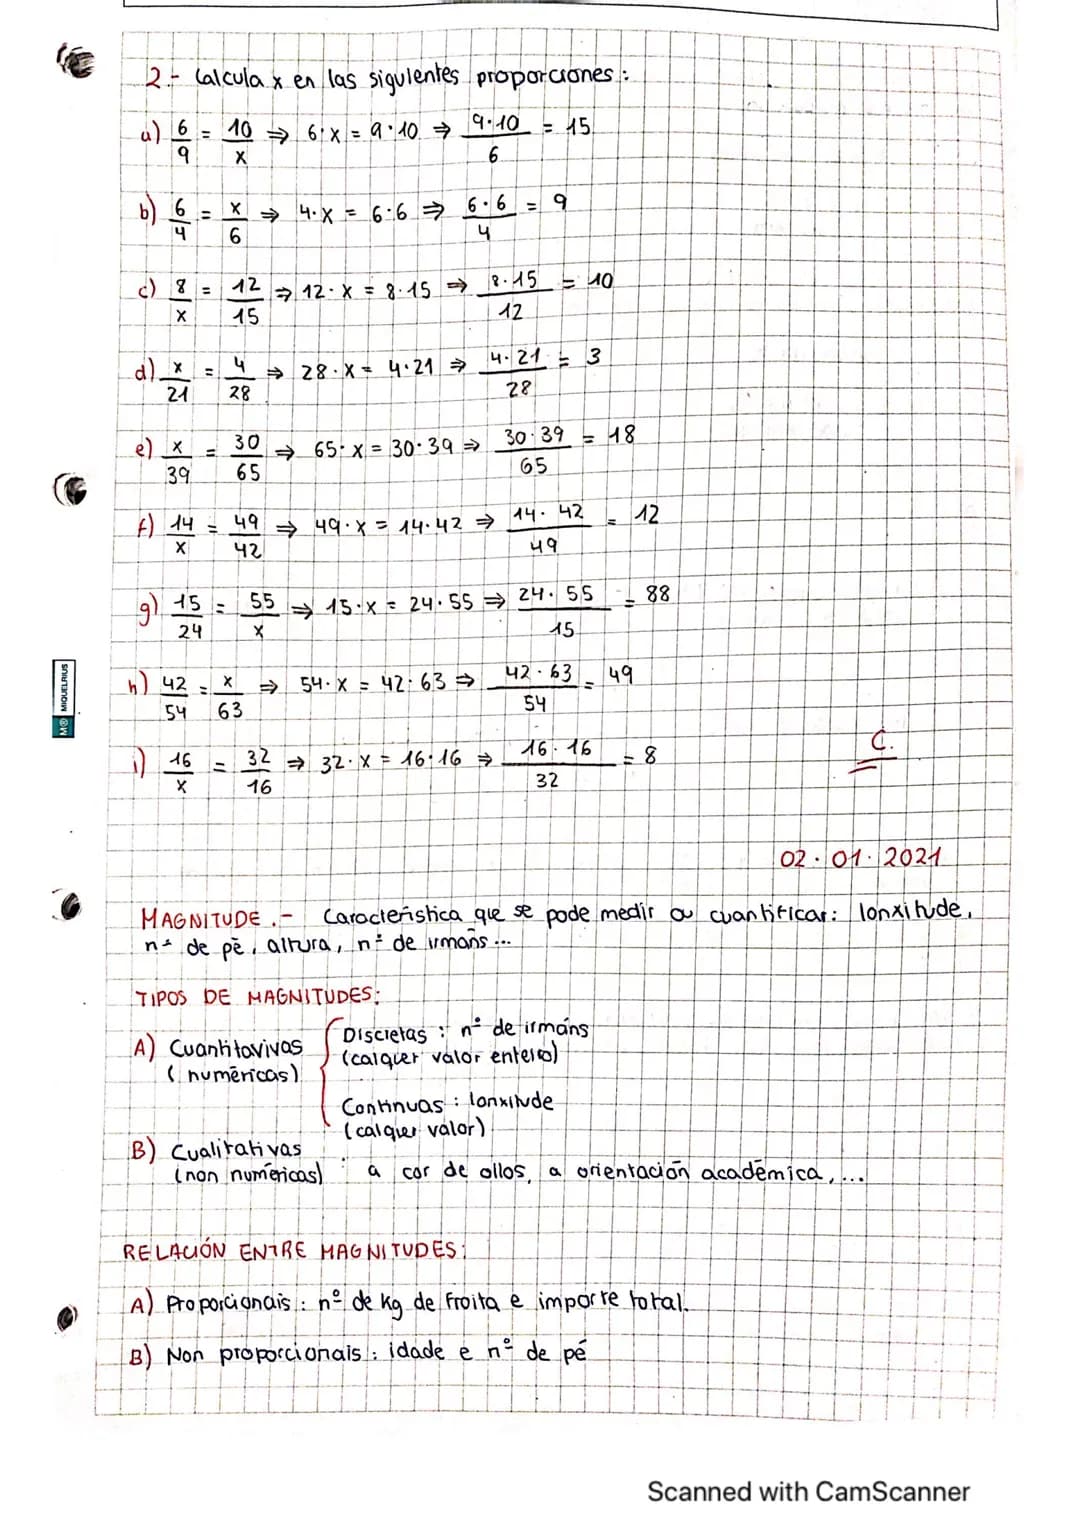 2.- Calcula x en las siguientes proporciones:
a) 6/9 = 10/x ⇒ 6·x = 9·10 ⇒ 9·10/6 = 15
b) 6/4 = x/6 ⇒ 4·x = 6·6 ⇒ 6·6/4 = 9
c) 8/x = 12/15 ⇒ 12·x = 8·15 ⇒ 8·15/12 = 10
d) x/21 = 4/28 ⇒ 28·x = 4·21 ⇒ 4·21/28 = 3
e) x/39 = 30/65 ⇒ 65·x = 30·39 ⇒ 30·39/65 = 18
f) 14/x = 49/42 ⇒ 49·x = 14·42 ⇒ 14·42/49 = 12
g) 15/24 = 55/x ⇒ 15·x = 24·55 ⇒ 24·55/15 = 88
h) 42/54 = x/63 ⇒ 54·x = 42·63 ⇒ 42·63/54 = 49
i) 16/x = 32/16 ⇒ 32·x = 16·16 ⇒ 16·16/32 = 8
C.
MIQUELRIUS
02·01·2021
MAGNITUDE.- Característica que se pode medir ou cuantificar: lonxitude,
nº de pé, altura, nº de irmáns...
TIPOS DE MAGNITUDES:
A) Cuantitavivas
(numéricas)
Discretas: nº de irmáns
(calquer valor enteiro)
Continuas: lonxitude
(calquer valor)
B) Cualitativas
(non numéricas): a cor de ollos, a orientación académica,...
RELACIÓN ENTRE MAGNITUDES:
A) Proporcionais: nº de kg de froita e importe total.
B) Non proporcionais: idade e nº de pé
Scanned with CamScanner